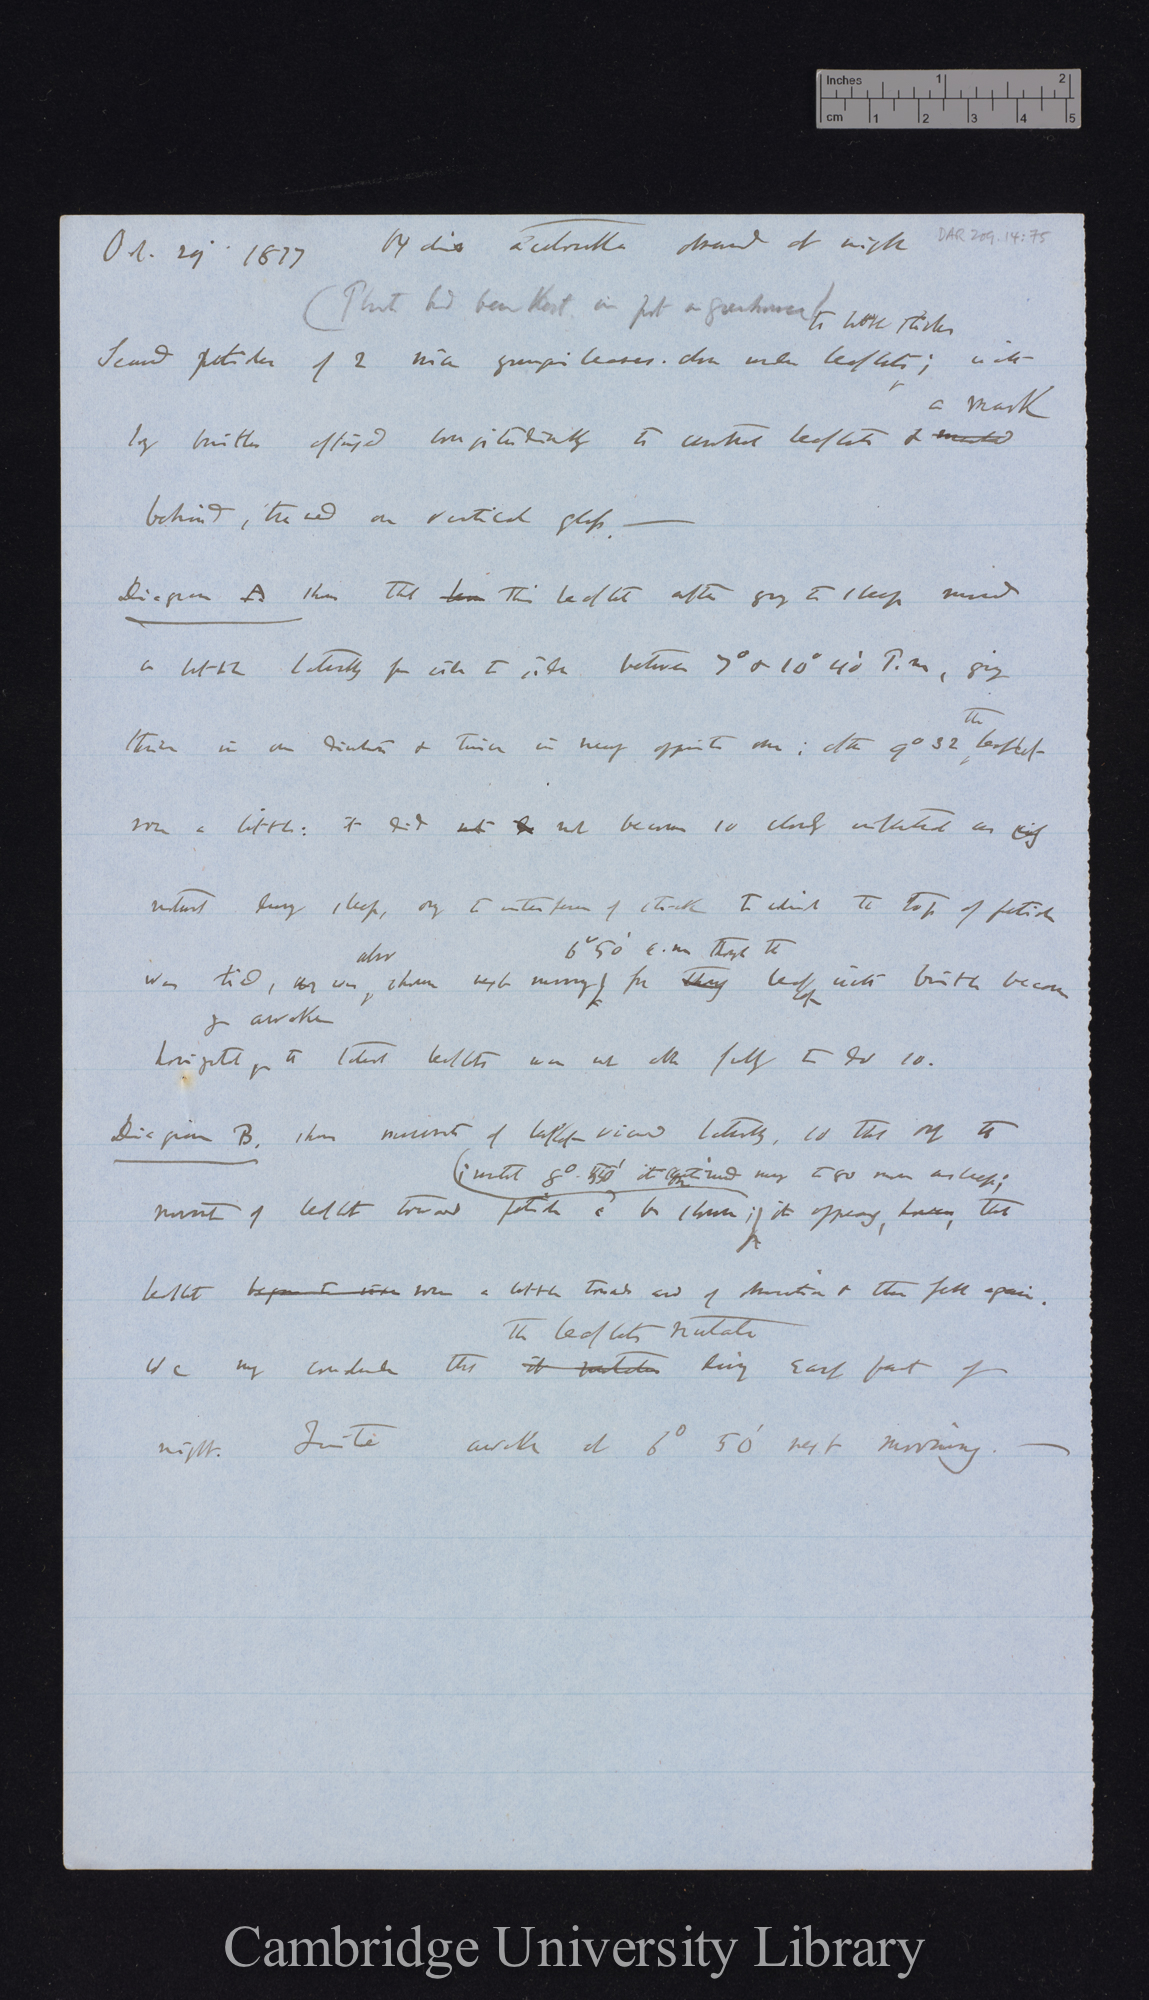 Inches 1 2
cm 1 2 3 4 5
Oct. 29 1877 Oxalis acetosella observed at night
DAR 209.14:75
(Plant had been kept in pot in greenhouse)
to little sticks
Secured petioles of 2 nice young leaves close under leaflets; with
a mark
by bristles affixed longitudinally to central leaflets &
behind, traced on vertical glass.—
Diagram A shows that this leaflet after going to sleep moved
a little laterally from side to side between 7° & 10° 40' P.m, going
the
thrice in one direction & twice in nearly opposite one; after 9° 32 leaflet
rose a little: it did not become so closely as
natural during sleep, owing to interference of stick to which the top of petiole
also 6° 50' a.m though the
was tied, as was shown next morning for leaf with bristle became
& awoke
horizontal the lateral leaflets were not able fully to do so.
Diagram B. shows movements of leaflet viewed laterally, so that only the
(until 8° 50' it continued to go more asleep;
movement of leaflet toward petiole could be shown; it appears, however, that
leaflet began to rise rose a little towards end of observation & then fell again.
The leaflets nutate
We may conclude that it nutates during early part of
night. Quite awake at 6° 50' next morning. —
Cambridge University Library